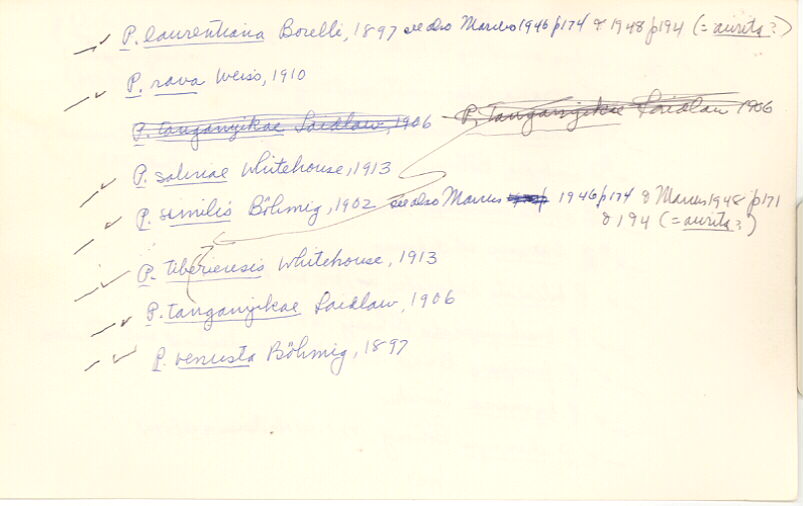 P. laurentiana Borelli, 1897 see also Marcus 1946 p174 & 1948 p194 (= aurita?)
P. rava Weiss, 1910
P. tanganyikae Laidlaw, 1906 P. Tanganyikae Laidlaw 1906
P. salinae Whitehouse, 1913
P. similis Böhmig, 1902 see also Marcus 1946 p174 & Marcus 1948 p171
& 194 (= aurita?)
P. tiberiensis Whitehouse, 1913
P. tanganyikae Laidlaw, 1906
P. venusta Böhmig, 1897